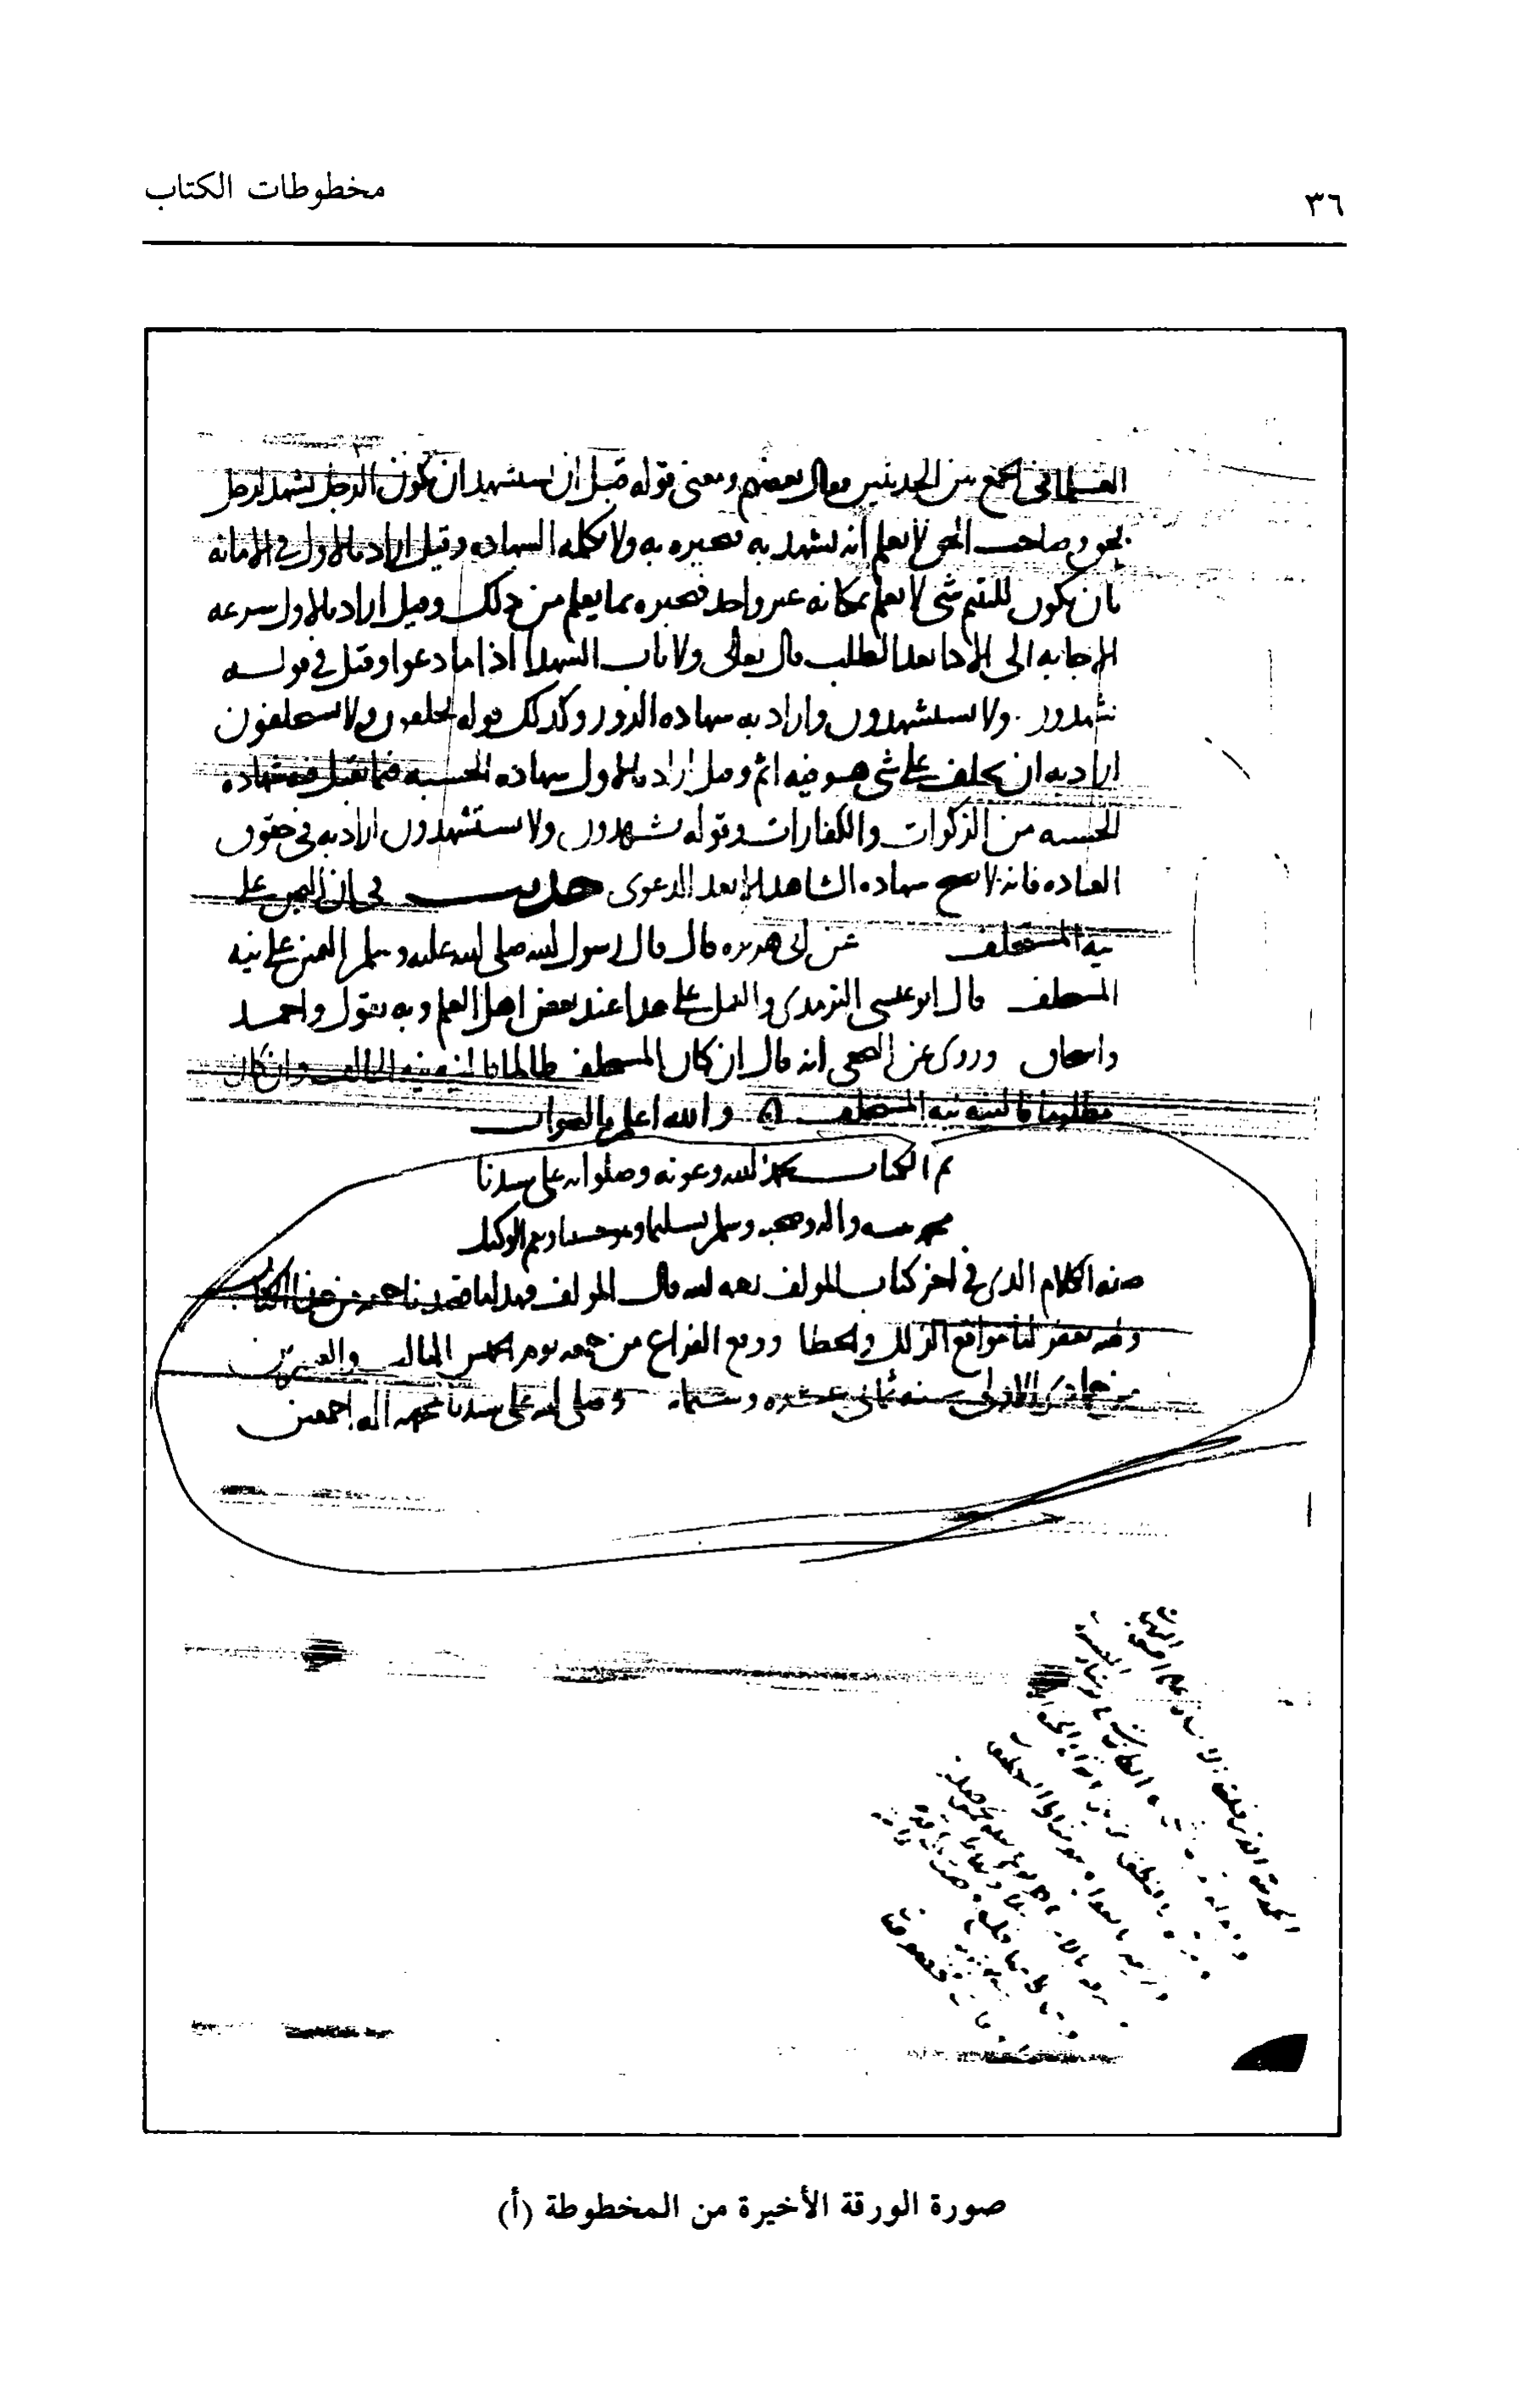 مخطوطات الكتاب
٣٦
العلما في الجمع بين الحديثين فقال بعضهم ومعنى قوله قبل ان يستشهد ان يكون الرجل يشهد لرجل
بحق وصاحب الحق لا يعلم انه يشهد به فيخبره به ولا يكتمه الشهاده وقيل اراد بالاول في الامانه
بان يكون لليتيم شي لا يعلم بمكانه غير واحد فيخبره بما يعلم من ذلك وقيل اراد بالاول سرعه
الاجابه الى الادا بعد الطلب قال تعالى ولا ياب الشهدا اذا ما دعوا وقيل في قوله
يشهدون ولا يستشهدون واراد به شهاده الزور وكذلك قوله يحلفون ولا يستحلفون
اراد به ان يحلف على شي هو فيه اثم وقيل اراد بالاول شهاده الحسبه فيما تقبل فيه شهاده
الحسبه من الزكوات والكفارات وقوله يشهدون ولا يستشهدون اراد به في حقوق
العباده فانه لا يصح شهاده الشاهد الا بعد الدعوى حديث في ان اليمين على
نيه المستحلف عن ابي هريره قال قال رسول الله صلى الله عليه وسلم اليمين على نيه
المستحلف قال ابو عيسى الترمذي والعمل على هذا عند بعض اهل العلم وبه يقول واحمد
واسحاق وروي عن النخعي انه قال ان كان المستحلف ظالما فالنيه نيه الحالف وان كان
مظلوما فالنيه نيه المستحلف ه والله اعلم بالصواب
تم الكتاب بحمد الله وعونه وصلواته على سيدنا
محمد نبيه واله وصحبه وسلم تسليما وهو حسبنا ونعم الوكيل
صفه الكلام الذي في اخر كتاب المولف رحمه الله قال المولف فهذا ما قصدنا جمعه من هذا الكتاب
والله يغفر لنا مواقع الزلل والخطا ووقع الفراغ من جمعه يوم الخميس الثالث والعشرين
من جمادى الاولى سنه ثماني عشره وستمايه وصلى الله على سيدنا محمد اله اجمعين
صورة الورقة الأخيرة من المخطوطة (أ)